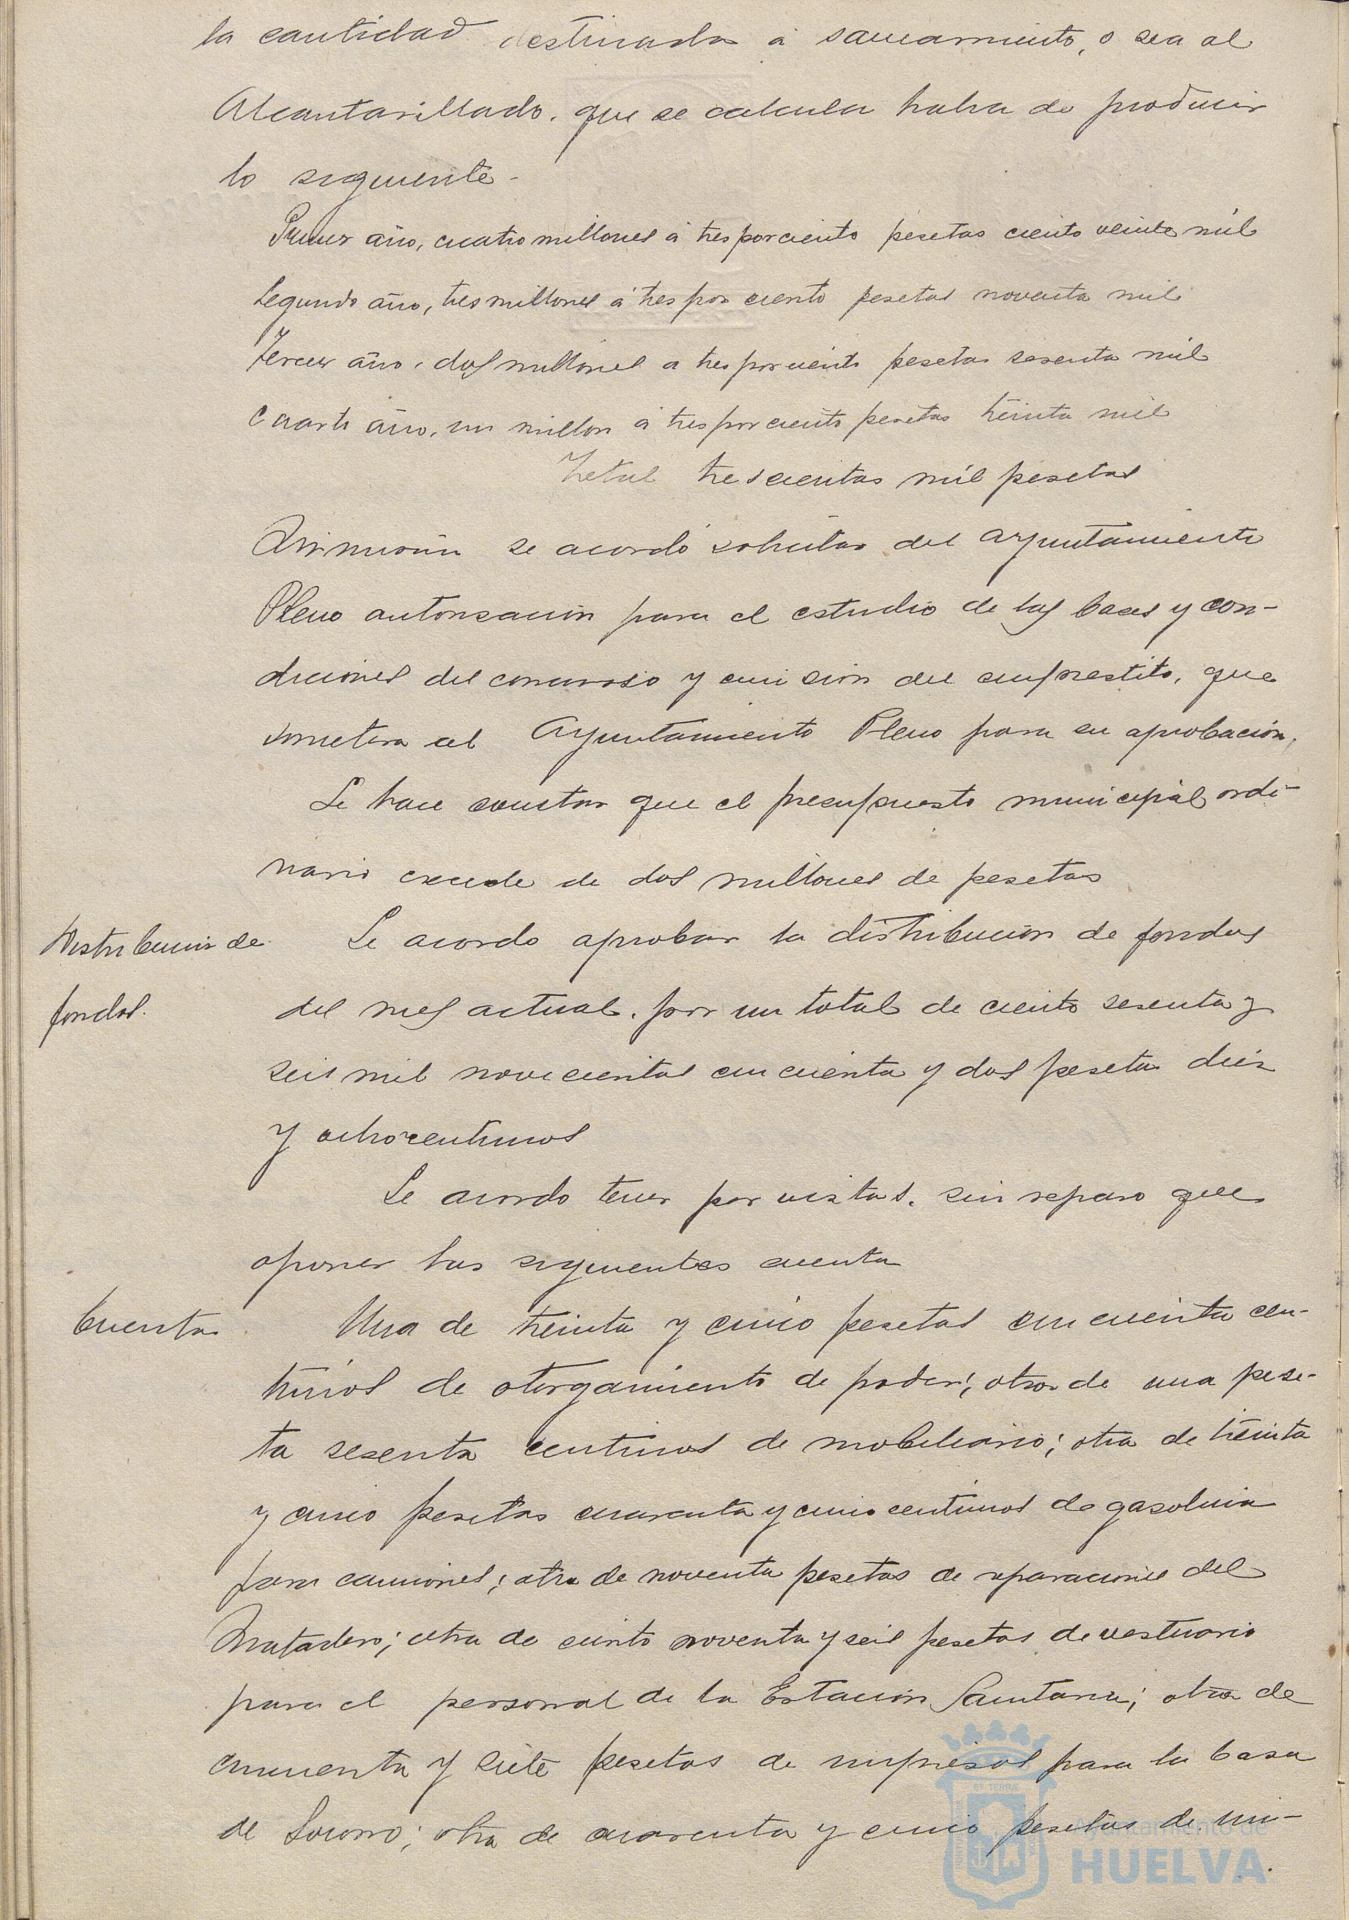 la cantidad destinada a saneamiento, o sea al
Alcantarillado, que se calcula habra de producir
lo siguiente -
Primer año, cuatro millones á tres por ciento pesetas ciento veinte mil
Segundo año, tres millones á tres por ciento pesetas noventa mil
Tercer año, dos millones a tres por ciento pesetas sesenta mil
Cuarto año, un millon á tres por ciento pesetas treinta mil
Total trescientas mil pesetas
Asimismo se acordó solicitar del Ayuntamiento
Pleno autorización para el estudio de las bases y con-
diciones del concurso y emision del emprestito, que
sometera al Ayuntamiento Pleno para su aprobación.
Se hace constar que el presupuesto municipal ordi-
nario excede de dos millones de pesetas
Distribucion de
fondos.
Se acordo aprobar la distribución de fondos
del mes actual, por un total de ciento sesenta y
seis mil novecientas cincuenta y dos peseta diez
y ocho centimos
Se acordo tener por vistas, sin reparo que
oponer las siguientes cuenta
Cuentas
Una de treinta y cinco pesetas cincuenta cen-
timos de otorgamiento de poder; otra de una pese-
ta sesenta centimos de mobiliario; otra de treinta
y cinco pesetas cuarenta y cinco centimos de gasolina
para camiones; otra de noventa pesetas de reparaciones del
Matadero; otra de ciento noventa y seis pesetas de vestuario
para el personal de la Estación Sanitaria; otra de
cincuenta y siete pesetas de impresos para la Casa
de Socorro; otra de cuarenta y cinco pesetas de im-
Ayuntamiento de
HUELVA